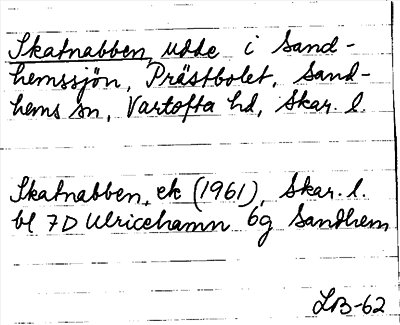 Skatnabben, udde i Sand-
hemssjön, Prästbolet, Sand-
hems sn, Vartofta hd, Skar. l.
Skatnabben, ek (1961), Skar. l.
bl 7D Ulricehamn 6g Sandhem
LB-62